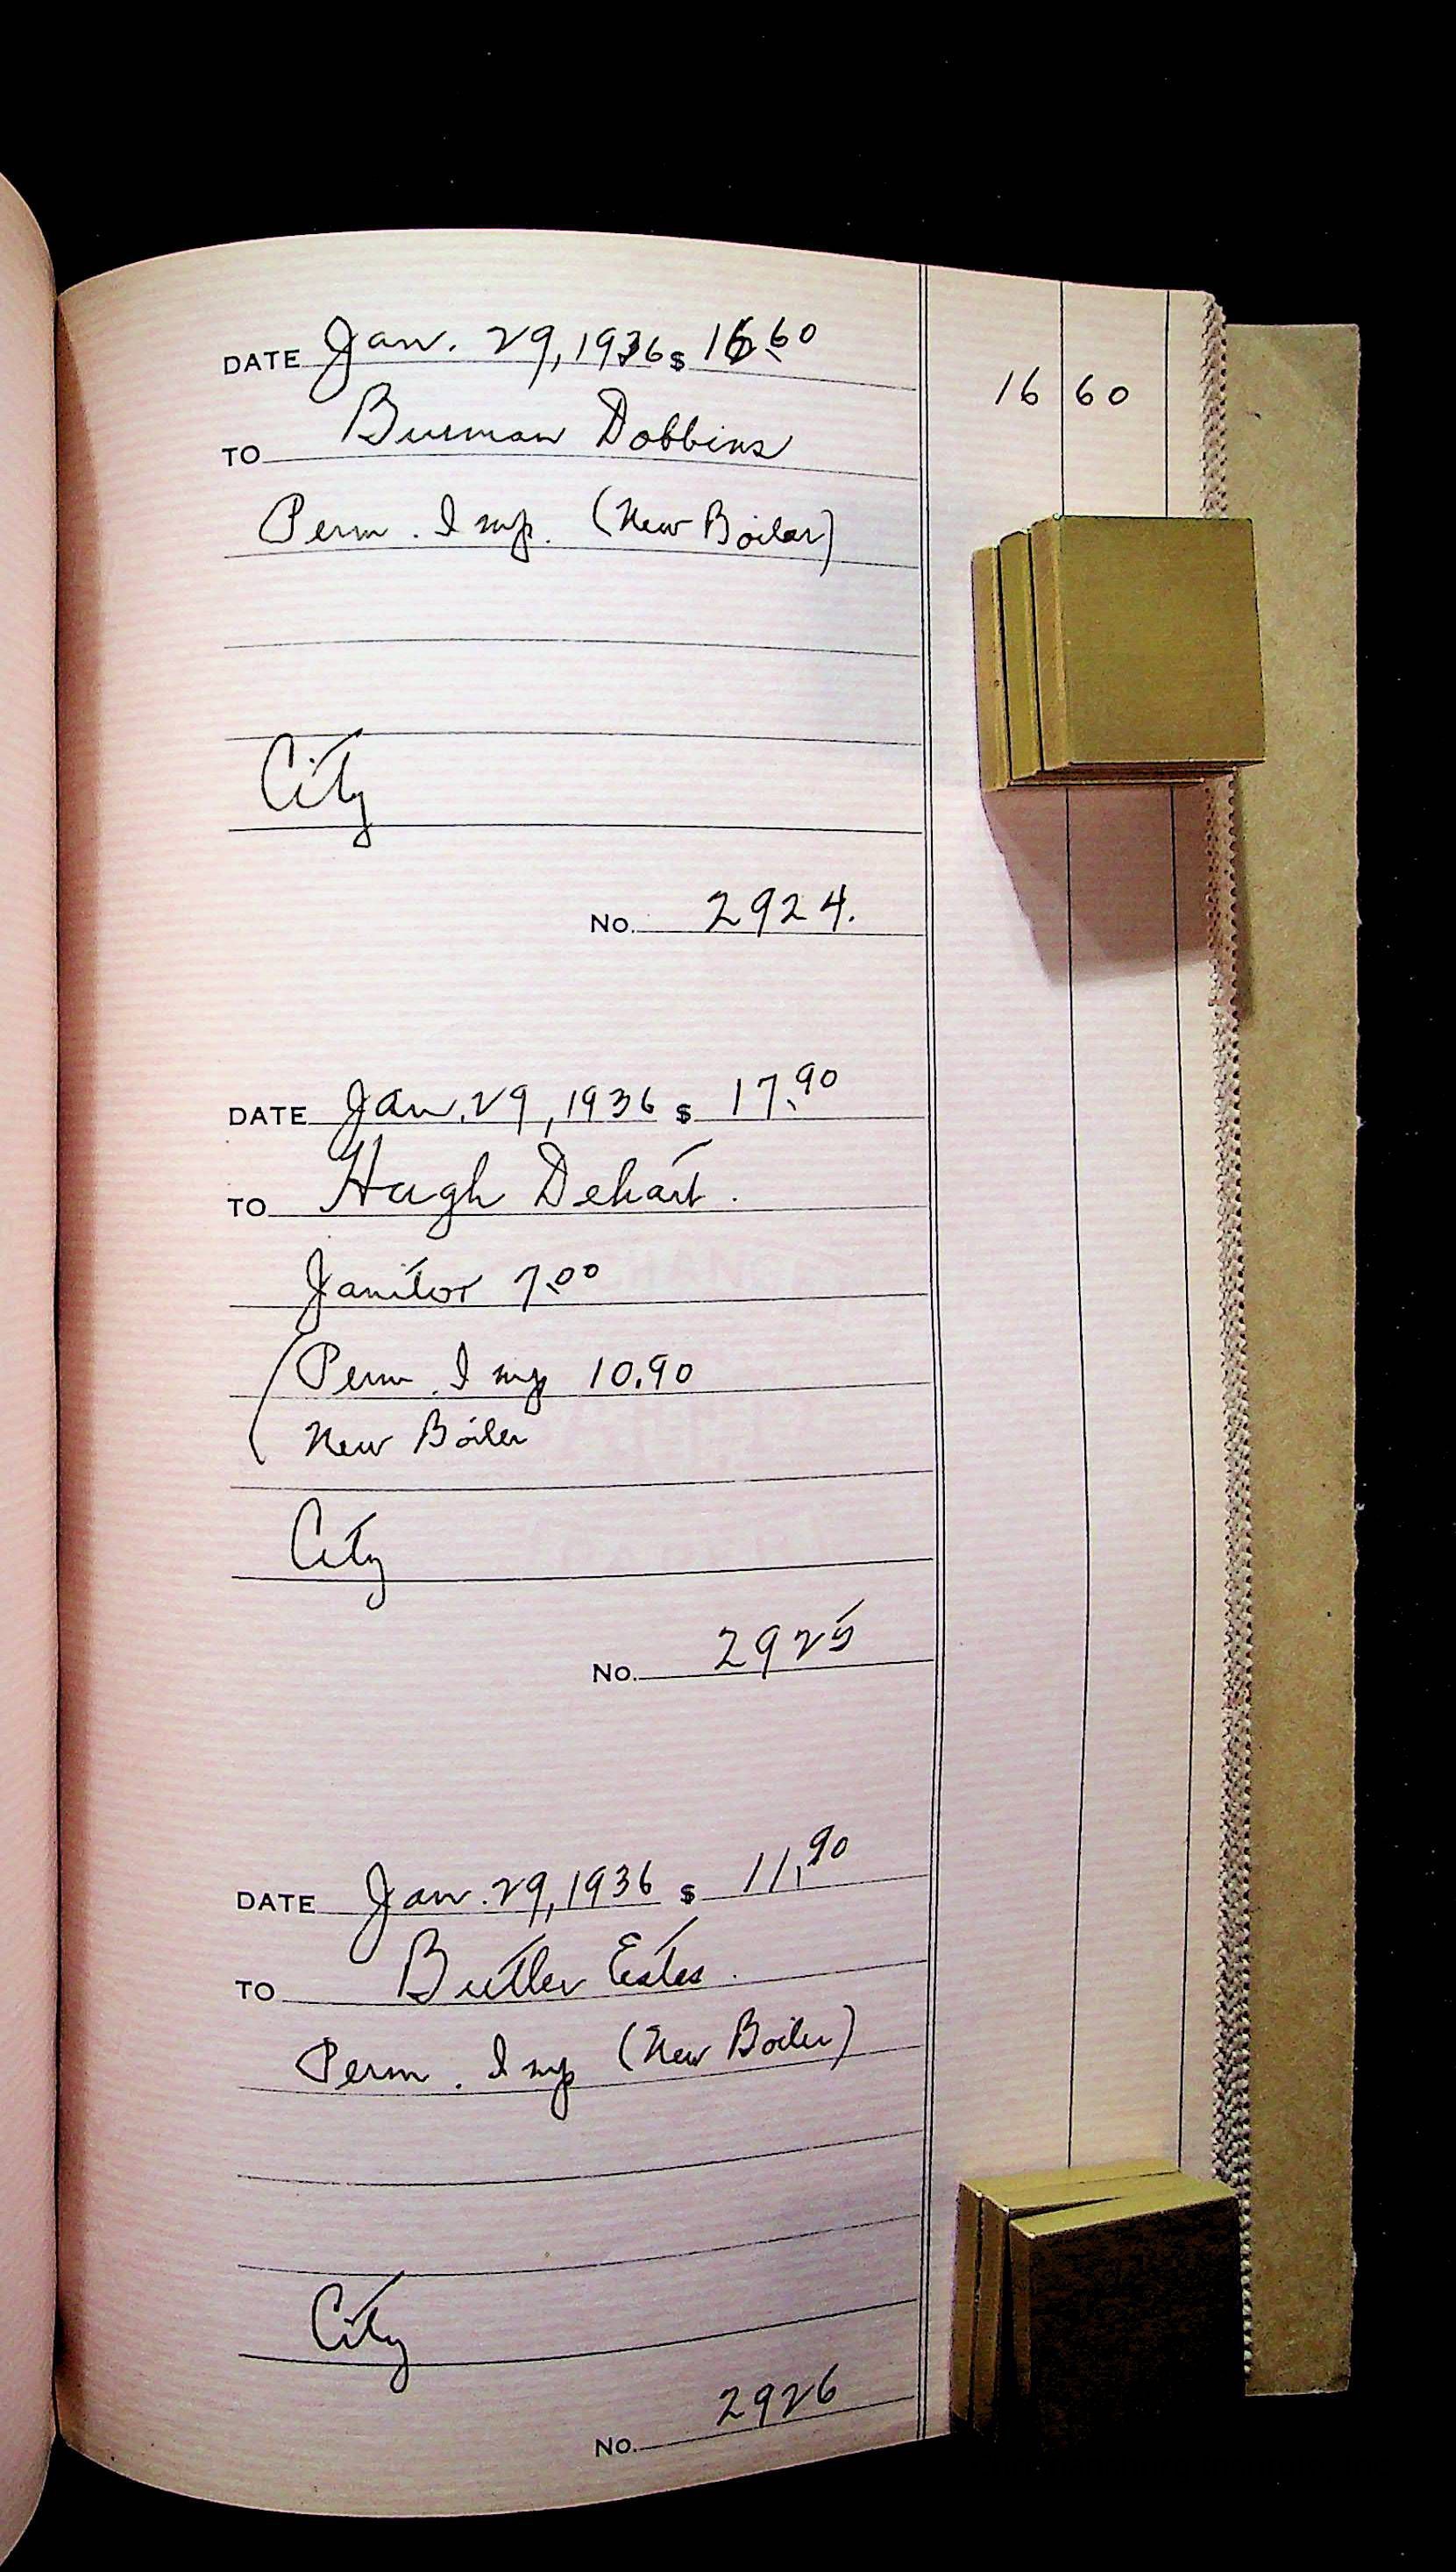 DATE Jan. 29, 1936 $ 16.60
16 60
TO Burman Dobbins
Perm. Imp. (New Boiler)
City
No. 2924.
DATE Jan. 29, 1936 $ 17.90
TO Hugh Dehart.
Janitor 7.00
(Perm. Imp 10.90
New Boiler
City
No. 2925
DATE Jan. 29, 1936 $ 11.90
TO Butler Estes.
Perm. Imp (New Boiler)
City
No. 2926